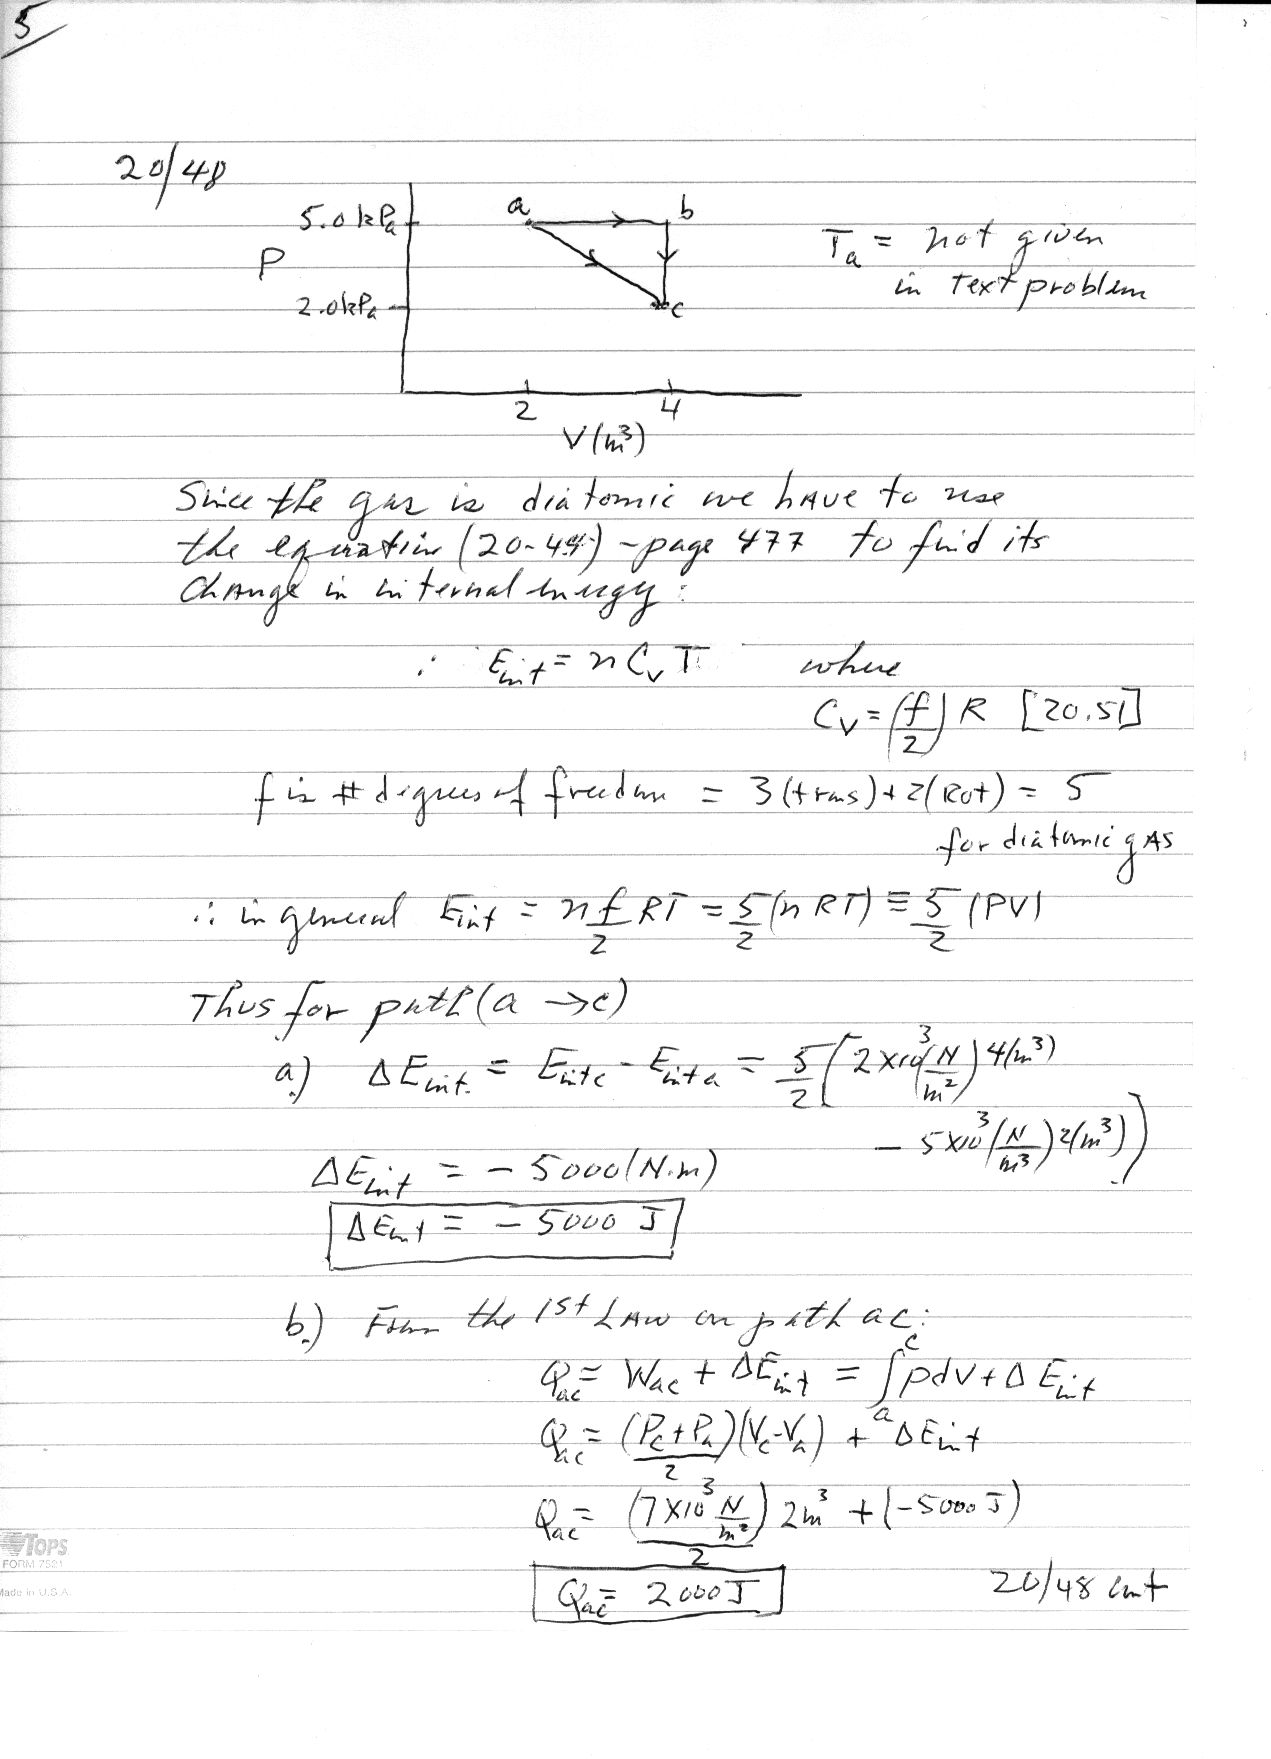 5
20/48
a b
5.0 kPa
P
2.0kPa
c
2 4
V(m³)
Ta = not given
in text problem
Since the gas is diatomic we have to use
the equation (20-44) - page 477 to find its
change in internal energy:
∴ Eint = n Cv T where
Cv = (f/2) R [20.51]
f is # degrees of freedom = 3(trans) + 2(Rot) = 5
for diatomic gAS
∴ in general Eint = n f/2 RT = 5/2 (n RT) ≡ 5/2 (PV)
Thus for path (a → c)
a.) ΔEint. = Eintc - Einta = 5/2 [2 x10³ (N/m²) 4(m³)
- 5x10³ (N/m³) 2(m³)]
ΔEint = - 5000 (N.m)
ΔEint = - 5000 J
b.) From the 1st LAW on path ac:
Qac = Wac + ΔEint = ∫ₐᶜ pdV + Δ Eint
Qac = (Pc + Pa)/2 (Vc - Va) + ΔEint
Qac = (7 x10³ N/m²)/2 2m³ + (-5000 J)
Qac = 2000 J
20/48 cont
TOPS
FORM 7521
Made in U.S.A.